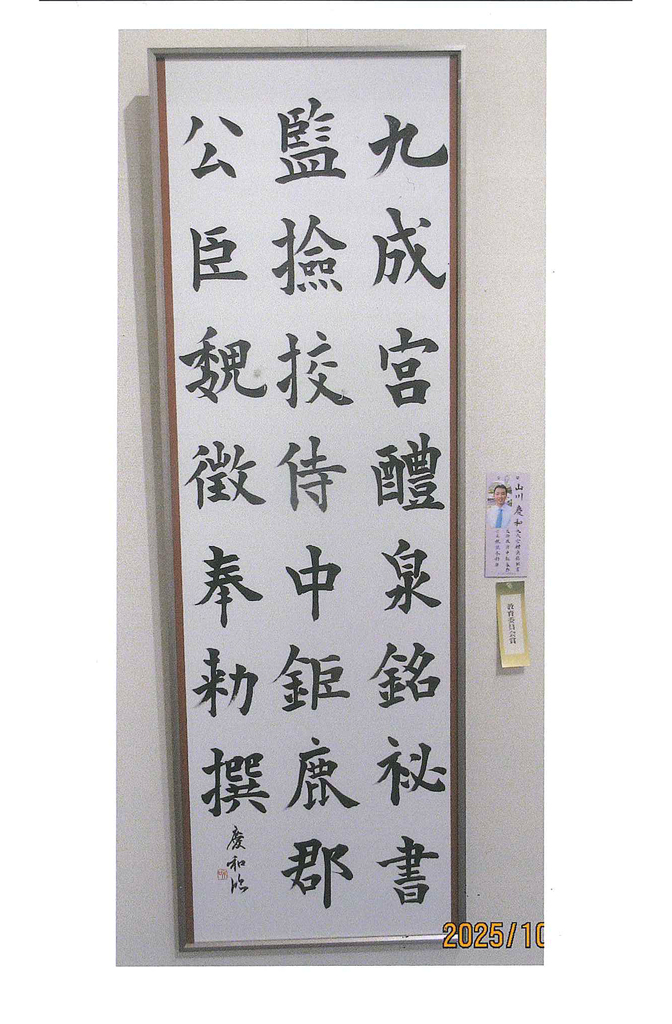 九成宮醴泉銘祕書
監撿挍侍中鉅鹿郡
公臣魏徵奉勅撰
慶和臨
山川慶和
教育委員会賞
2025/10